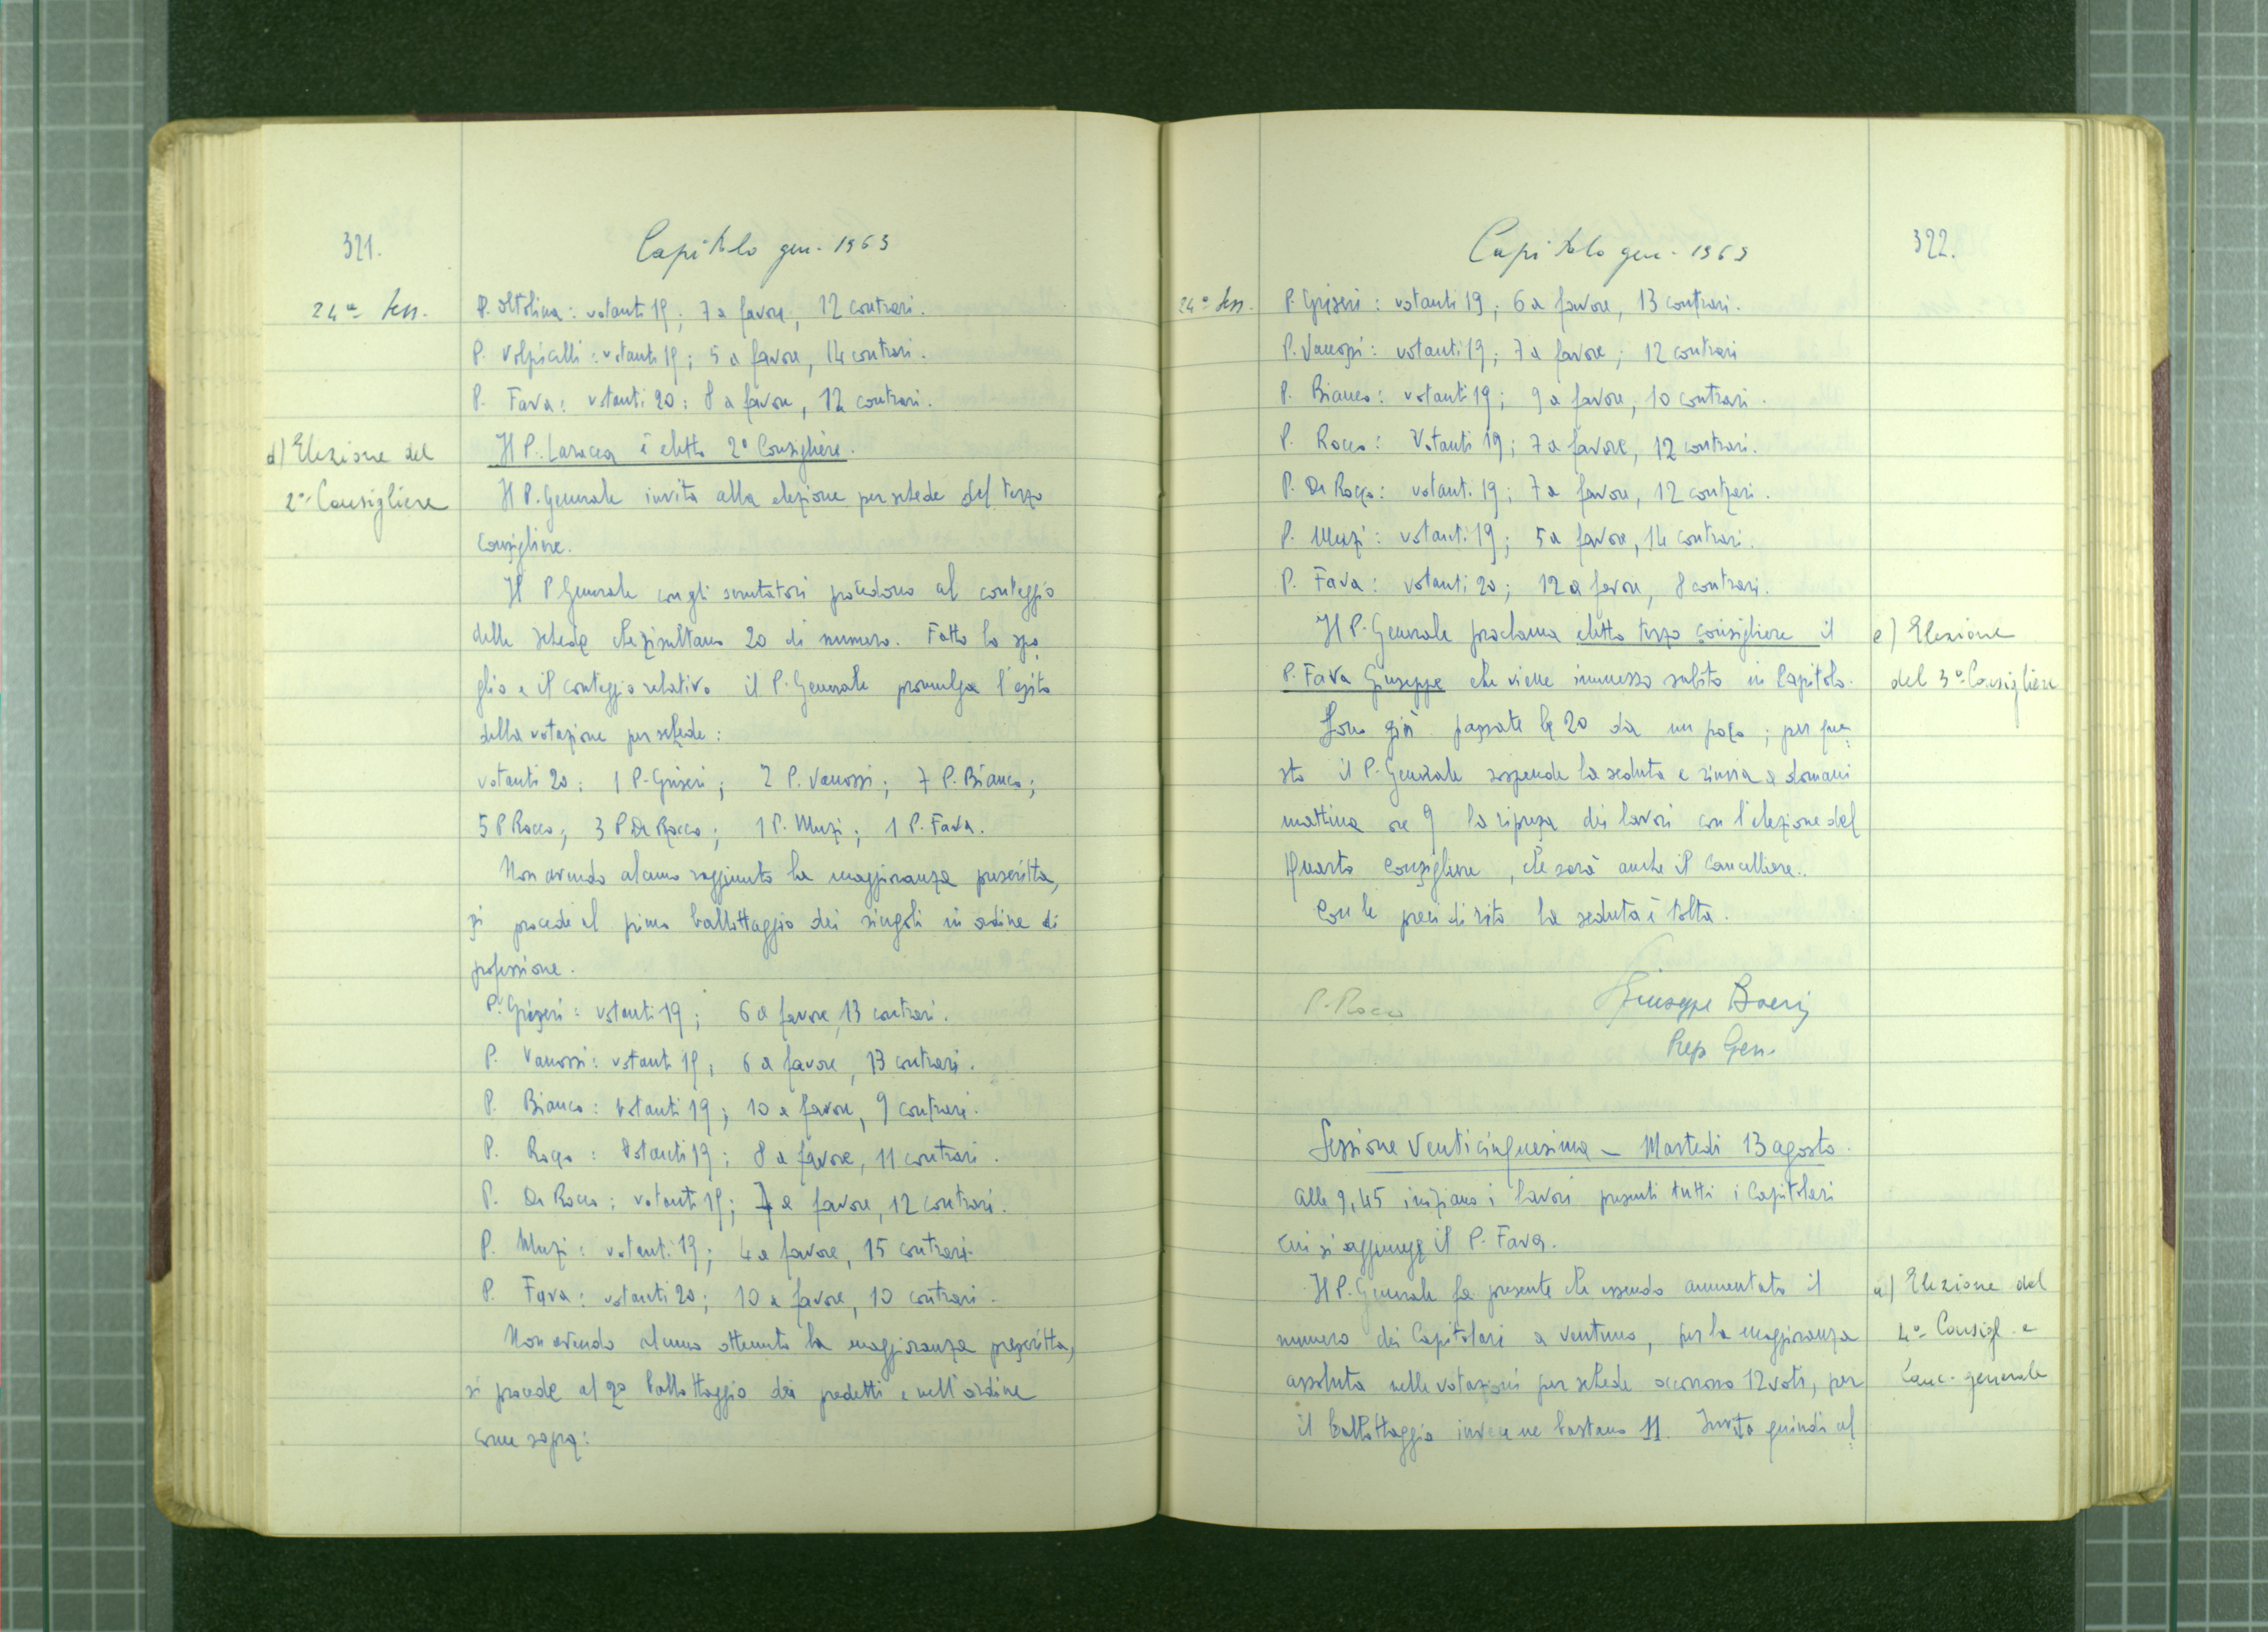 321.
Capitolo gen. 1963
24a Sess.
P. Oltolina: votanti 19; 7 a favore, 12 contrari.
P. Volpicelli: votanti 19; 5 a favore, 14 contrari.
P. Fava: votanti 20: 8 a favore, 12 contrari.
d) Elezione del
2o Consigliere
Il P. Larocca è eletto 2o Consigliere.
Il P. Generale invita alla elezione per schede del terzo
Consigliere.
Il P Generale con gli scrutatori procedono al conteggio
delle schede che risultano 20 di numero. Fatto lo spo
glio e il conteggio relativo il P. Generale promulga l'esito
della votazione per schede:
votanti 20: 1 P. Griseri; 2 P. Vanossi; 7 P. Bianco;
5 P Rocco; 3 P De Rocco; 1 P. Muzi; 1 P. Fava.
Non avendo alcuno raggiunto la maggioranza prescritta,
si procede al primo ballottaggio dei singoli in ordine di
professione.
P. Griseri: votanti 19; 6 a favore, 13 contrari.
P. Vanossi: votanti 19; 6 a favore, 13 contrari.
P. Bianco: votanti 19; 10 a favore, 9 contrari.
P. Rocco: votanti 19; 8 a favore, 11 contrari.
P. De Rocco: votanti 19; 7 a favore, 12 contrari.
P. Muzi: votanti 19; 4 a favore, 15 contrari.
P. Fava: votanti 20; 10 a favore, 10 contrari.
Non avendo alcuno ottenuto la maggioranza prescritta,
si procede al 2o ballottaggio dei predetti e nell'ordine
come sopra:
Capitolo gen. 1963
322.
24a Sess.
P. Griseri: votanti 19; 6 a favore, 13 contrari.
P. Vanossi: votanti 19; 7 a favore; 12 contrari
P. Bianco: votanti 19; 9 a favore; 10 contrari.
P. Rocco: Votanti 19; 7 a favore, 12 contrari.
P. De Rocco: votanti 19; 7 a favore, 12 contrari.
P. Muzi: votanti 19; 5 a favore, 14 contrari.
P. Fava: votanti 20; 12 a favore, 8 contrari.
Il P. Generale proclama eletto terzo consigliere il
P. Fava Giuseppe che viene immesso subito in Capitolo.
e) Elezione
del 3o Consigliere
Sono già passate le 20 da un poco; per que
sto il P. Generale sospende la seduta e rinvia a domani
mattina ore 9 la ripresa dei lavori con l'elezione del
Quarto Consigliere, che sarà anche il Cancelliere.
Con le preci di rito la seduta è tolta.
P. Rocco
Giuseppe Boeri
Prep Gen.
Sessione Venticinquesima - Martedì 13 agosto.
Alle 9,45 iniziano i lavori presenti tutti i Capitolari
cui si aggiunge il P. Fava.
Il P. Generale fa presente che essendo aumentato il
numero dei Capitolari a ventuno, per la maggioranza
assoluta nelle votazioni per schede occorrono 12 voti, per
il ballottaggio invece ne bastano 11. Invita quindi al
a) Elezione del
4o Consigl. e
Canc. generale